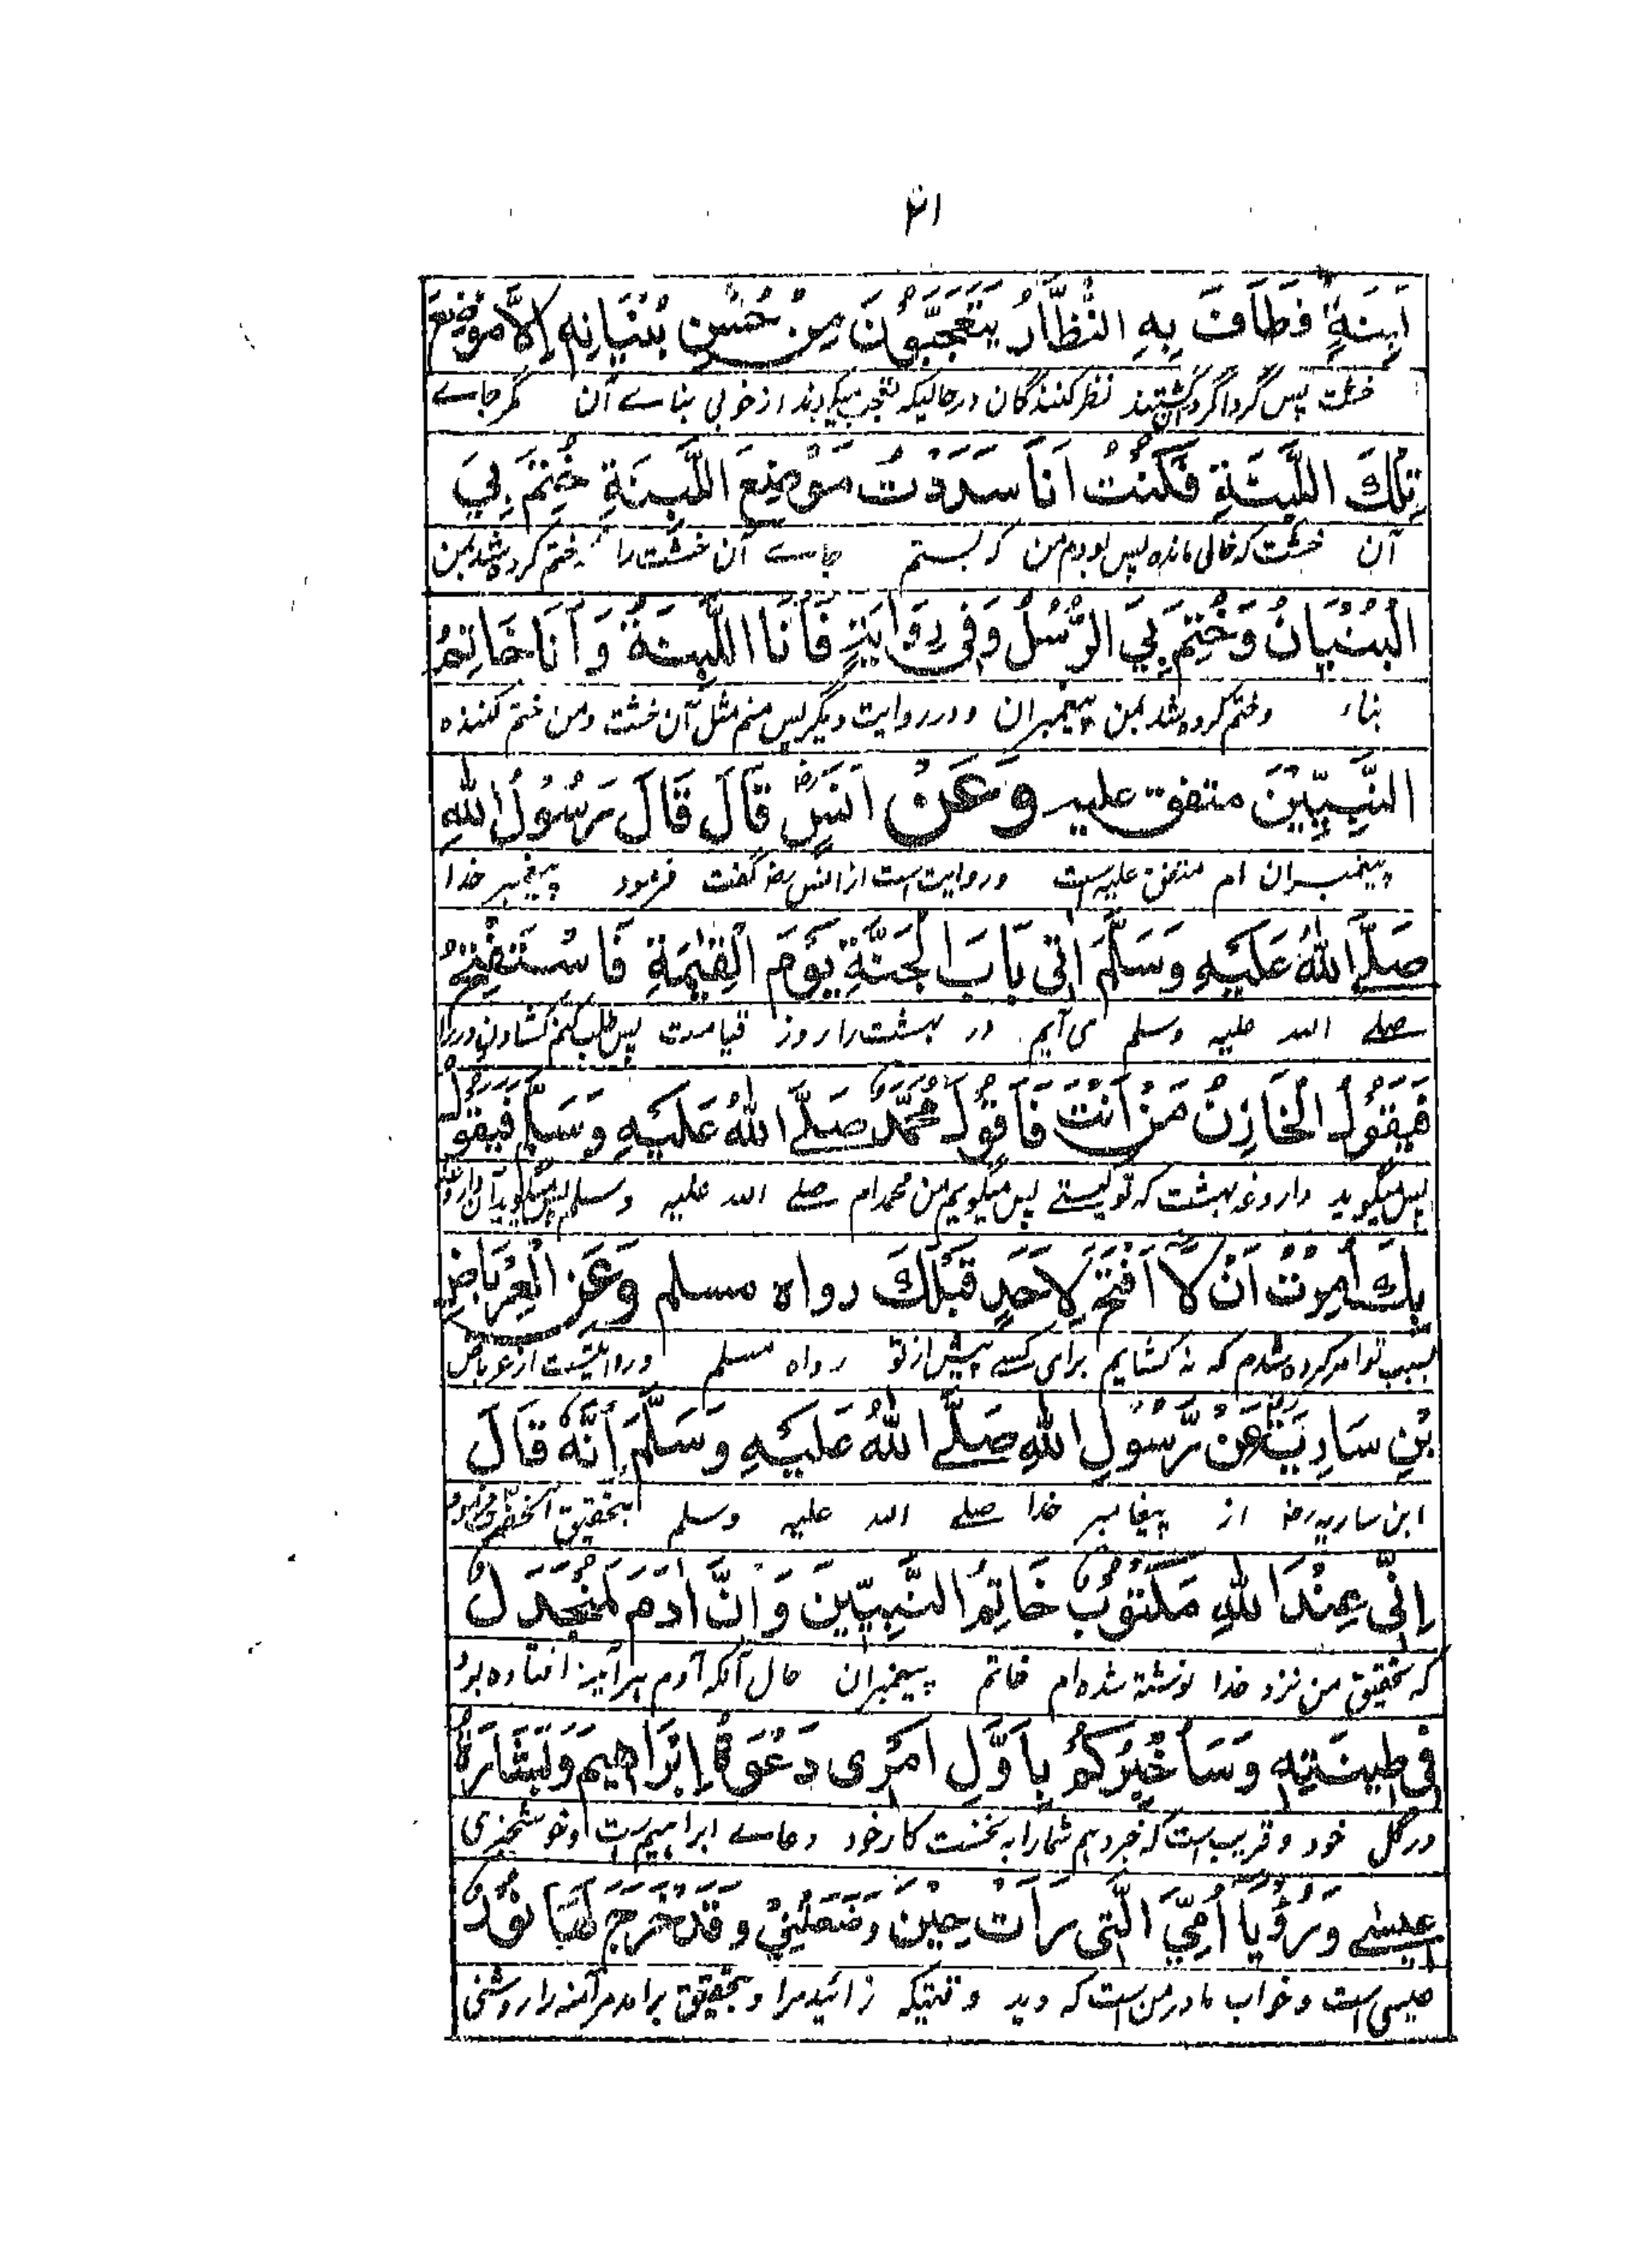 ۴۱
لَبِنَةٍ فَطَافَ بِهِ النُّظَّارُ يَتَعَجَّبُونَ مِنْ حُسْنِ بُنْيَانِهِ إِلَّا مَوْضِعَ
خشت پس گرداگرد گشتند نظر کنندگان در حالیکه تعجب میکردند از خوبی بنای آن مگر جاے
تِلْكَ اللَّبِنَةِ فَكُنْتُ اَنَا سَدَدْتُ مَوْضِعَ اللَّبِنَةِ خُتِمَ بِيَ
آن خشت که خالی مانده پس بودم من که بستم جاے آن خشت را ختم کرده شد بمن
الْبُنْيَانُ وَخُتِمَ بِيَ الرُّسُلُ وَفِي رِوَايَةٍ فَأَنَا اللَّبِنَةُ وَأَنَا خَاتِمُ
بناء وختم کرده شد بمن پیغمبران و در روایت دیگر پس منم مثل آن خشت و من ختم کننده
النَّبِيِّيْنَ متفق عليه وَعَنْ اَنَسٍ رض قَالَ قَالَ رَسُوْلُ اللهِ
پیغمبران ام متفق علیه است و روایت است از انس رض گفت فرمود پیغمبر خدا
صَلَّى اللهُ عَلَيْهِ وَسَلَّمَ اٰتِى بَابَ الْجَنَّةِ يَوْمَ الْقِيٰمَةِ فَاسْتَفْتِحُ
صلے الله علیه وسلم می آیم در بهشت را روز قیامت پس طلب میکنم کشادن در را
فَيَقُوْلُ الْخَازِنُ مَنْ أَنْتَ فَأَقُوْلُ مُحَمَّدٌ صَلَّى اللهُ عَلَيْهِ وَسَلَّمَ فَيَقُوْلُ
پس میگوید داروغه بهشت که تو کیستے پس میگویم من محمد ام صلے الله علیه وسلم پس میگوید آن داروغه
بِكَ أُمِرْتُ اَنْ لَّا اَفْتَحَ لِاَحَدٍ قَبْلَكَ رواه مسلم وَعَنِ الْعِرْبَاضِ
بسبب تو امر کرده شدم که نه کشایم برای کسے پیش از تو رواه مسلم و روایتست از عرباض
بْنِ سَارِيَةَ رض عَنْ رَّسُوْلِ اللهِ صَلَّى اللهُ عَلَيْهِ وَسَلَّمَ أَنَّهُ قَالَ
ابن ساریه رض از پیغامبر خدا صلے الله علیه وسلم بتحقیق آنحضرت فرمود
إِنِّي عِنْدَ اللهِ مَكْتُوْبٌ خَاتِمُ النَّبِيِّيْنَ وَاَنَّ اٰدَمَ لَمُنْجَدِلٌ
که تحقیق من نزد خدا نوشته شده ام خاتم پیغمبران حال آنکه آدم هر آئینه افتاده بود
فِي طِيْنَتِهِ وَسَأُخْبِرُكُمْ بِاَوَّلِ اَمْرِى دَعْوَةُ إِبْرَاهِيْمَ وَبَشَارَةُ
در گل خود و قریب است که خبر دهم شما را به نخست کار خود دعاے ابراهیم است و خوشخبری
عِيْسٰے وَرُؤْيَا أُمِّيَ الَّتِى رَأَتْ حِيْنَ وَضَعَتْنِيْ وَقَدْ خَرَجَ لَهَا نُوْرٌ
عیسی است و خواب مادر من است که دید وقتیکه زائید مرا و بتحقیق برآمد مر آمنه را روشنی